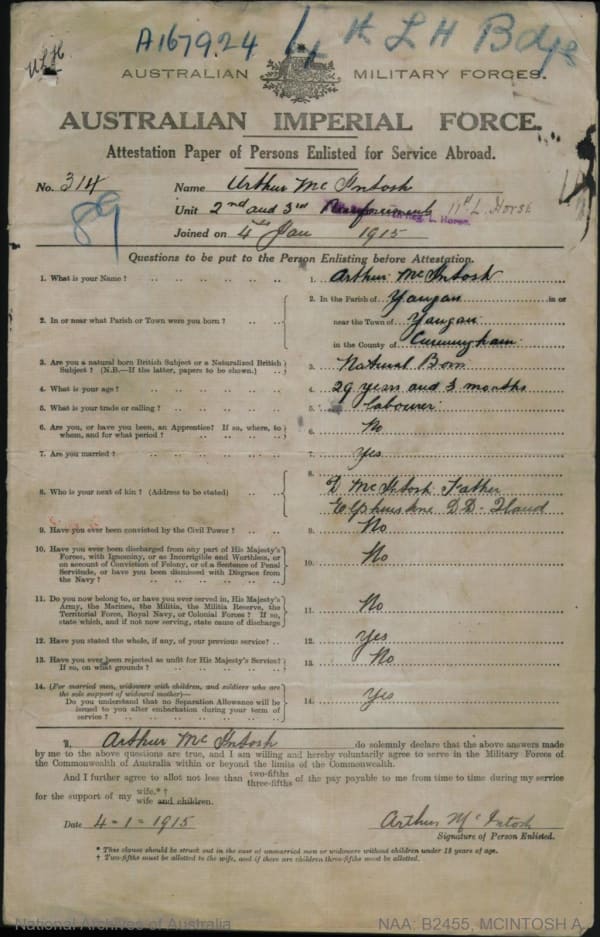 ULH
A1679.24 4th L H Bdge
AUSTRALIAN MILITARY FORCES.
AUSTRALIAN IMPERIAL FORCE.
Attestation Paper of Persons Enlisted for Service Abroad.
No. 314 Name Arthur Mc Intosh
89 Unit 2nd and 3rd Reinforcements 11th L. Horse
Joined on 4 Jan 1915
Questions to be put to the Person Enlisting before Attestation.
1. What is your Name? 1. Arthur Mc Intosh
2. In or near what Parish or Town were you born? 2. In the Parish of Yangan in or
near the Town of Yangan
in the County of Cunningham
3. Are you a natural born British Subject or a Naturalized British
Subject? (N.B.—If the latter, papers to be shown.) 3. Natural Born
4. What is your age? 4. 29 years and 3 months
5. What is your trade or calling? 5. labourer
6. Are you, or have you been, an Apprentice? If so, where, to
whom, and for what period? 6. No
7. Are you married? 7. Yes
8. Who is your next of kin? (Address to be stated) 8. Mc Intosh Father
Elphinstone D.D.
9. Have you ever been convicted by the Civil Power? 9. No
10. Have you ever been discharged from any part of His Majesty's
Forces, with Ignominy, or as Incorrigible and Worthless, or
on account of Conviction of Felony, or of a Sentence of Penal
Servitude, or have you been dismissed with Disgrace from
the Navy? 10. No
11. Do you now belong to, or have you ever served in, His Majesty's
Army, the Marines, the Militia, the Militia Reserve, the
Territorial Force, Royal Navy, or Colonial Forces? If so,
state which, and if not now serving, state cause of discharge 11. No
12. Have you stated the whole, if any, of your previous service? 12. Yes
13. Have you ever been rejected as unfit for His Majesty's Service?
If so, on what grounds? 13. No
14. (For married men, widowers with children, and soldiers who are
the sole support of widowed mother)—
Do you understand that no Separation Allowance will be
issued to you after embarkation during your term of
service? 14. Yes
I, Arthur Mc Intosh do solemnly declare that the above answers made
by me to the above questions are true, and I am willing and hereby voluntarily agree to serve in the Military Forces of
the Commonwealth of Australia within or beyond the limits of the Commonwealth.
And I further agree to allot not less than two-fifths three-fifths of the pay payable to me from time to time during my service
for the support of my wife.*† wife and children.
Date 4-1-1915 Arthur Mc Intosh
Signature of Person Enlisted.
* This clause should be struck out in the case of unmarried men or widowers without children under 18 years of age.
† Two-fifths must be allotted to the wife, and if there are children three-fifths must be allotted.
National Archives of Australia NAA: B2455, MCINTOSH A